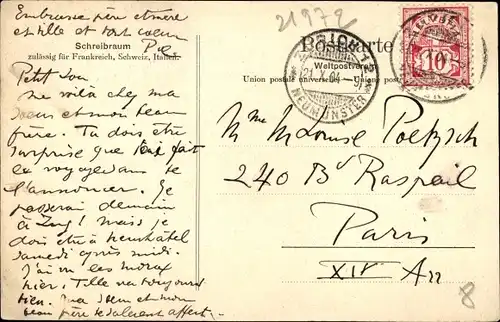 Embrasse père et mère
et tille et tout coeur
21972
Schreibraum
zulässig für Frankreich, Schweiz, Italien.
Postkarte
Weltpostverein
Union postale universelle. Union post
ZÜRICH
21.X.04.-9
NEUMÜNSTER
10
Petit Lou
me voilà chez ma
soeur et mon beau
frère. Tu dois être
surprise que j'ai fait
le voyage sans te
l'annoncer. Je
passerai demain
à Zug! mais je
dois être à Neuchâtel
samedi après midi.
J'ai vu les
hier. Tille va toujours
bien. Ma soeur et mon
beau frère te saluent affect.
Mme Louise Poetzsch
240 Bd Raspail
Paris
XIV Arr
8